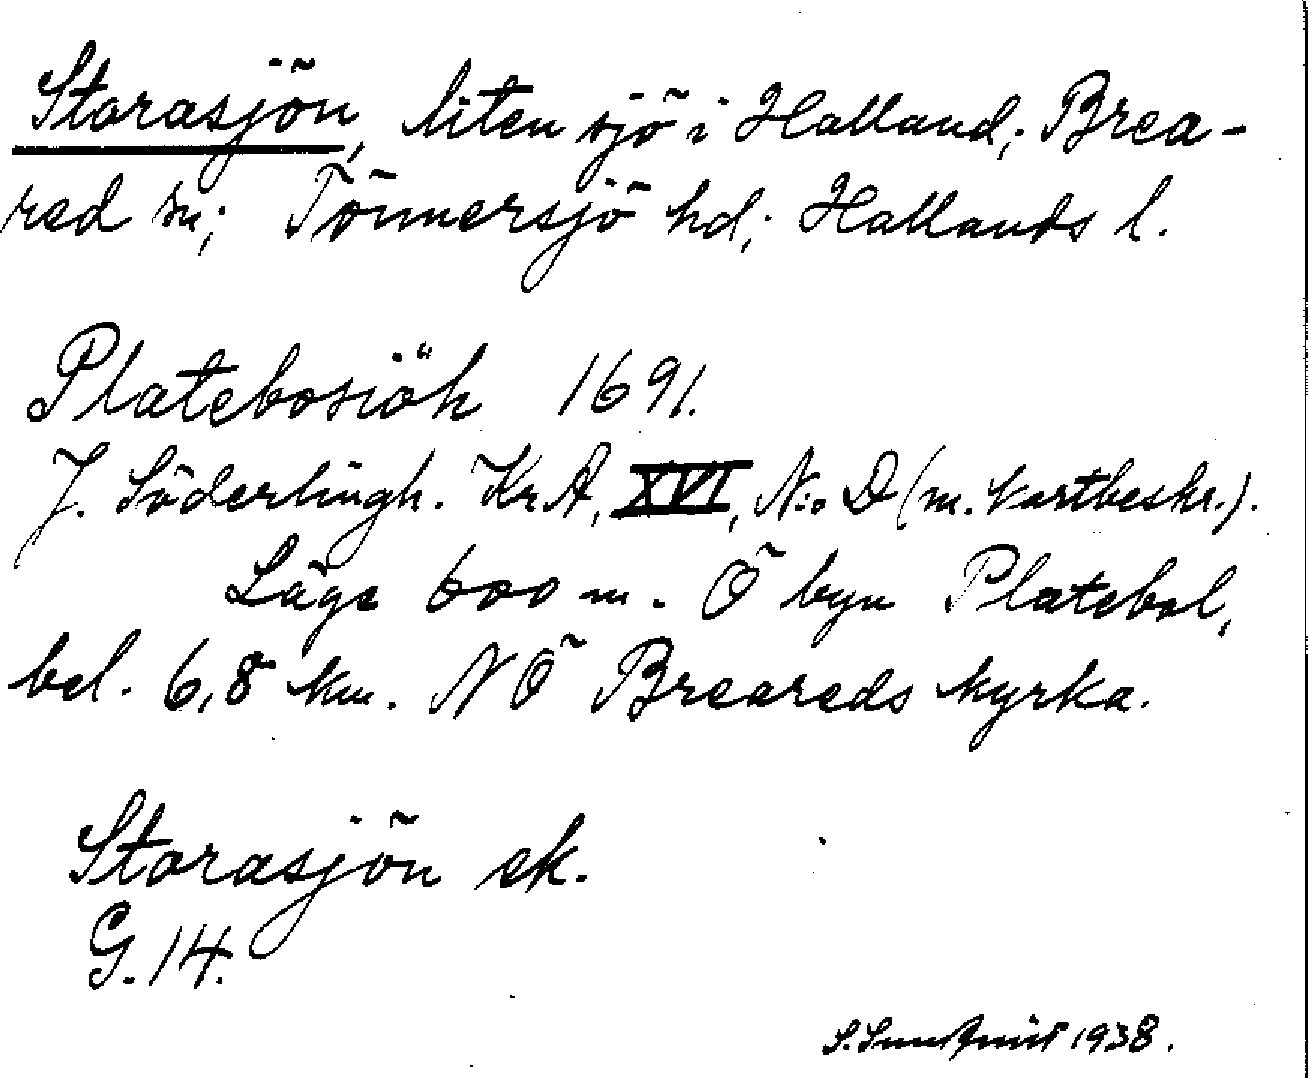 Storasjön, liten sjö i Halland; Brea-
red sn; Tönnersjö hd; Hallands l.
Platebosiöh 1691.
J. Söderlingh. Kr.A, XVI, N:o D (m. kartbeskr.).
Läge 600 m. Ö byn Platebol,
bel. 6,8 km. NÖ Breareds kyrka.
Storasjön ek.
G. 14.
S. Sundqvist 1938.